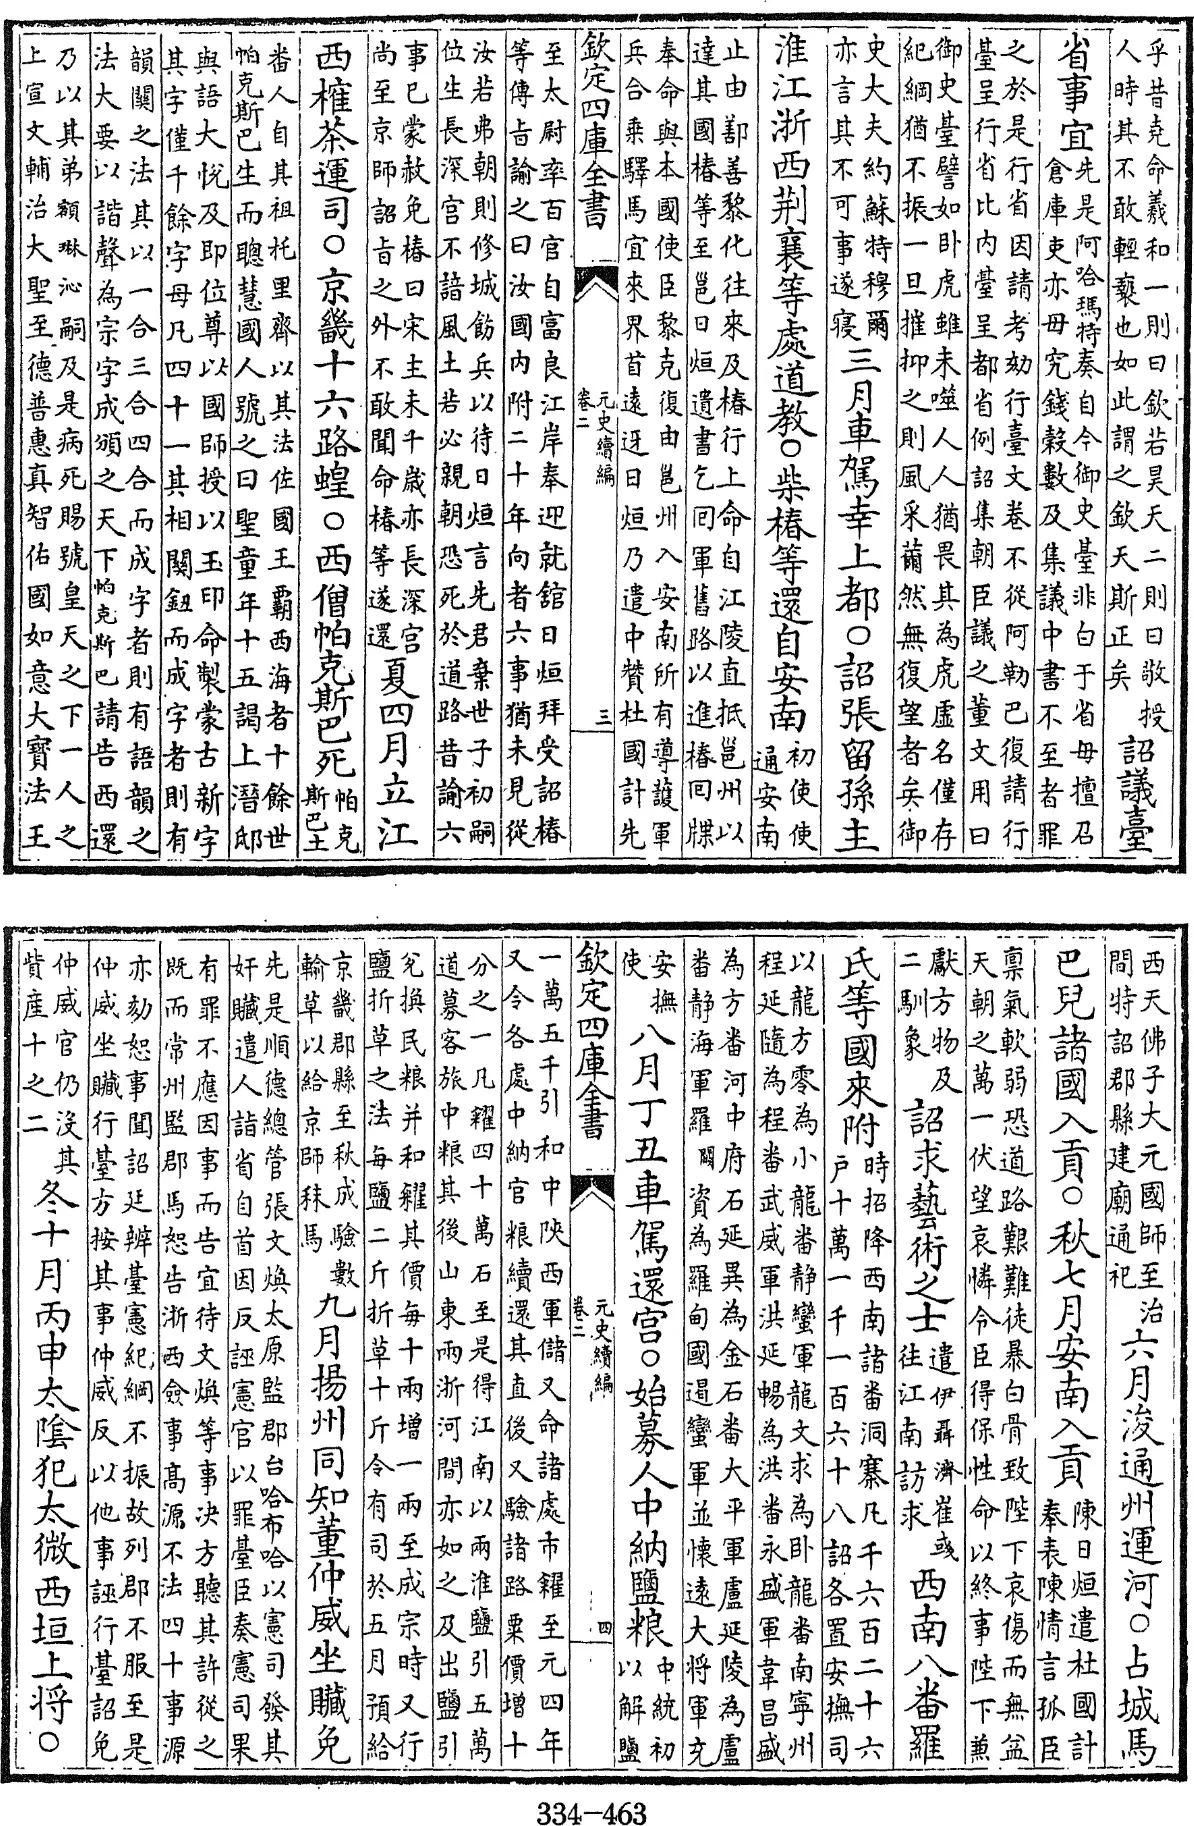 乎昔堯命羲和一則曰欽若昊天二則曰敬授
人時其不敢輕褻也如此謂之欽天斯正矣
詔議臺
省事宜
先是阿哈瑪特奏自今御史臺非白于省毋擅召
倉庫吏亦毋究錢穀數及集議中書不至者罪
之於是行省因請考劾行臺文卷不從阿勒巴復請行
臺呈行省比内臺呈都省例詔集朝臣議之董文用曰
御史臺譬如卧虎雖未噬人人猶畏其為虎虚名僅存
紀綱猶不振一旦摧抑之則風采薾然無復望者矣御
史大夫約蘇特穆爾
亦言其不可事遂寢
三月車駕幸上都○詔張留孫主
淮江浙西荆襄等處道教○柴椿等還自安南
初使使
通安南
止由鄯善黎化往來及椿行上命自江陵直抵邕州以
達其國椿等至邕日烜遺書乞回軍舊路以進椿回牒
奉命與本國使臣黎克復由邕州入安南所有導護軍
兵合乗驛馬宜來界首遠迓日烜乃遣中賛杜國計先
欽定四庫全書
元史續編
卷二
三
至太尉率百官自富良江岸奉迎就舘日烜拜受詔椿
等傳㫖諭之曰汝國内附二十年向者六事猶未見從
汝若弗朝則修城飭兵以待日烜言先君棄世子初嗣
位生長深宫不諳風土若必親朝恐死於道路昔諭六
事已蒙赦免椿曰宋主未千歲亦長深宫
尚至京師詔㫖之外不敢聞命椿等遂還
夏四月立江
西榷茶運司○京畿十六路蝗○西僧帕克斯巴死
帕克
斯巴土
番人自其祖托里齋以其法佐國王霸西海者十餘世
帕克斯巴生而聰慧國人號之曰聖童年十五謁上潛邸
與語大悦及即位尊以國師授以玉印命製蒙古新字
其字僅千餘字母凡四十一其相關鈕而成字者則有
韻關之法其以一合三合四合而成字者則有語韻之
法大要以諧聲為宗字成頒之天下帕克斯巴請告西還
乃以其弟額琳沁嗣及是病死賜號皇天之下一人之
上宣文輔治大聖至德普惠真智佑國如意大寳法王
西天佛子大元國師至治
間特詔郡縣建廟通祀
六月浚通州運河○占城馬
巴兒諸國入貢○秋七月安南入貢
陳日烜遣杜國計
奉表陳情言孤臣
禀氣軟弱恐道路艱難徒暴白骨致陛下哀傷而無益
天朝之萬一伏望哀憐令臣得保性命以終事陛下兼
獻方物及
二馴象
詔求藝術之士
遣伊聶濟崔彧
往江南訪求
西南八番羅
氏等國來附
時招降西南諸番洞寨凡千六百二十六
戸十萬一千一百六十八詔各置安撫司
以龍方零為小龍番静蠻軍龍文求為卧龍番南寧州
程延隨為程番武威軍洪延暢為洪番永盛軍韋昌盛
為方番河中府石延異為金石番大平軍盧延陵為盧
番静海軍羅闕資為羅甸國遏蠻軍並懷遠大将軍充
安撫
使
八月丁丑車駕還宫○始募人中納鹽粮
中統初
以解鹽
欽定四庫全書
元史續編
卷二
四
一萬五千引和中陜西軍儲又命諸處市糴至元四年
又令各處中納官粮續還其直後又驗諸路粟價增十
分之一凡糴四十萬石至是得江南以兩淮鹽引五萬
道募客旅中粮其後山東兩浙河間亦如之及出鹽引
兊換民粮并和糴其價每十兩增一兩至成宗時又行
鹽折草之法每鹽二斤折草十斤令有司於五月預給
京畿郡縣至秋成驗數
輸草以給京師秣馬
九月揚州同知董仲威坐贓免
先是順德總管張文煥太原監郡台哈布哈以憲司發其
奸贓遣人詣省自首因反誣憲官以罪臺臣奏憲司果
有罪不應因事而告宜待文煥等事决方聽其許從之
既而常州監郡馬恕告浙西僉事高源不法四十事源
亦劾恕事聞詔廷辨臺憲紀綱不振故列郡不服至是
仲威坐贓行臺方按其事仲威反以他事誣行臺詔免
仲威官仍没其
貲産十之二
冬十月丙申太隂犯太微西垣上将○
334-463